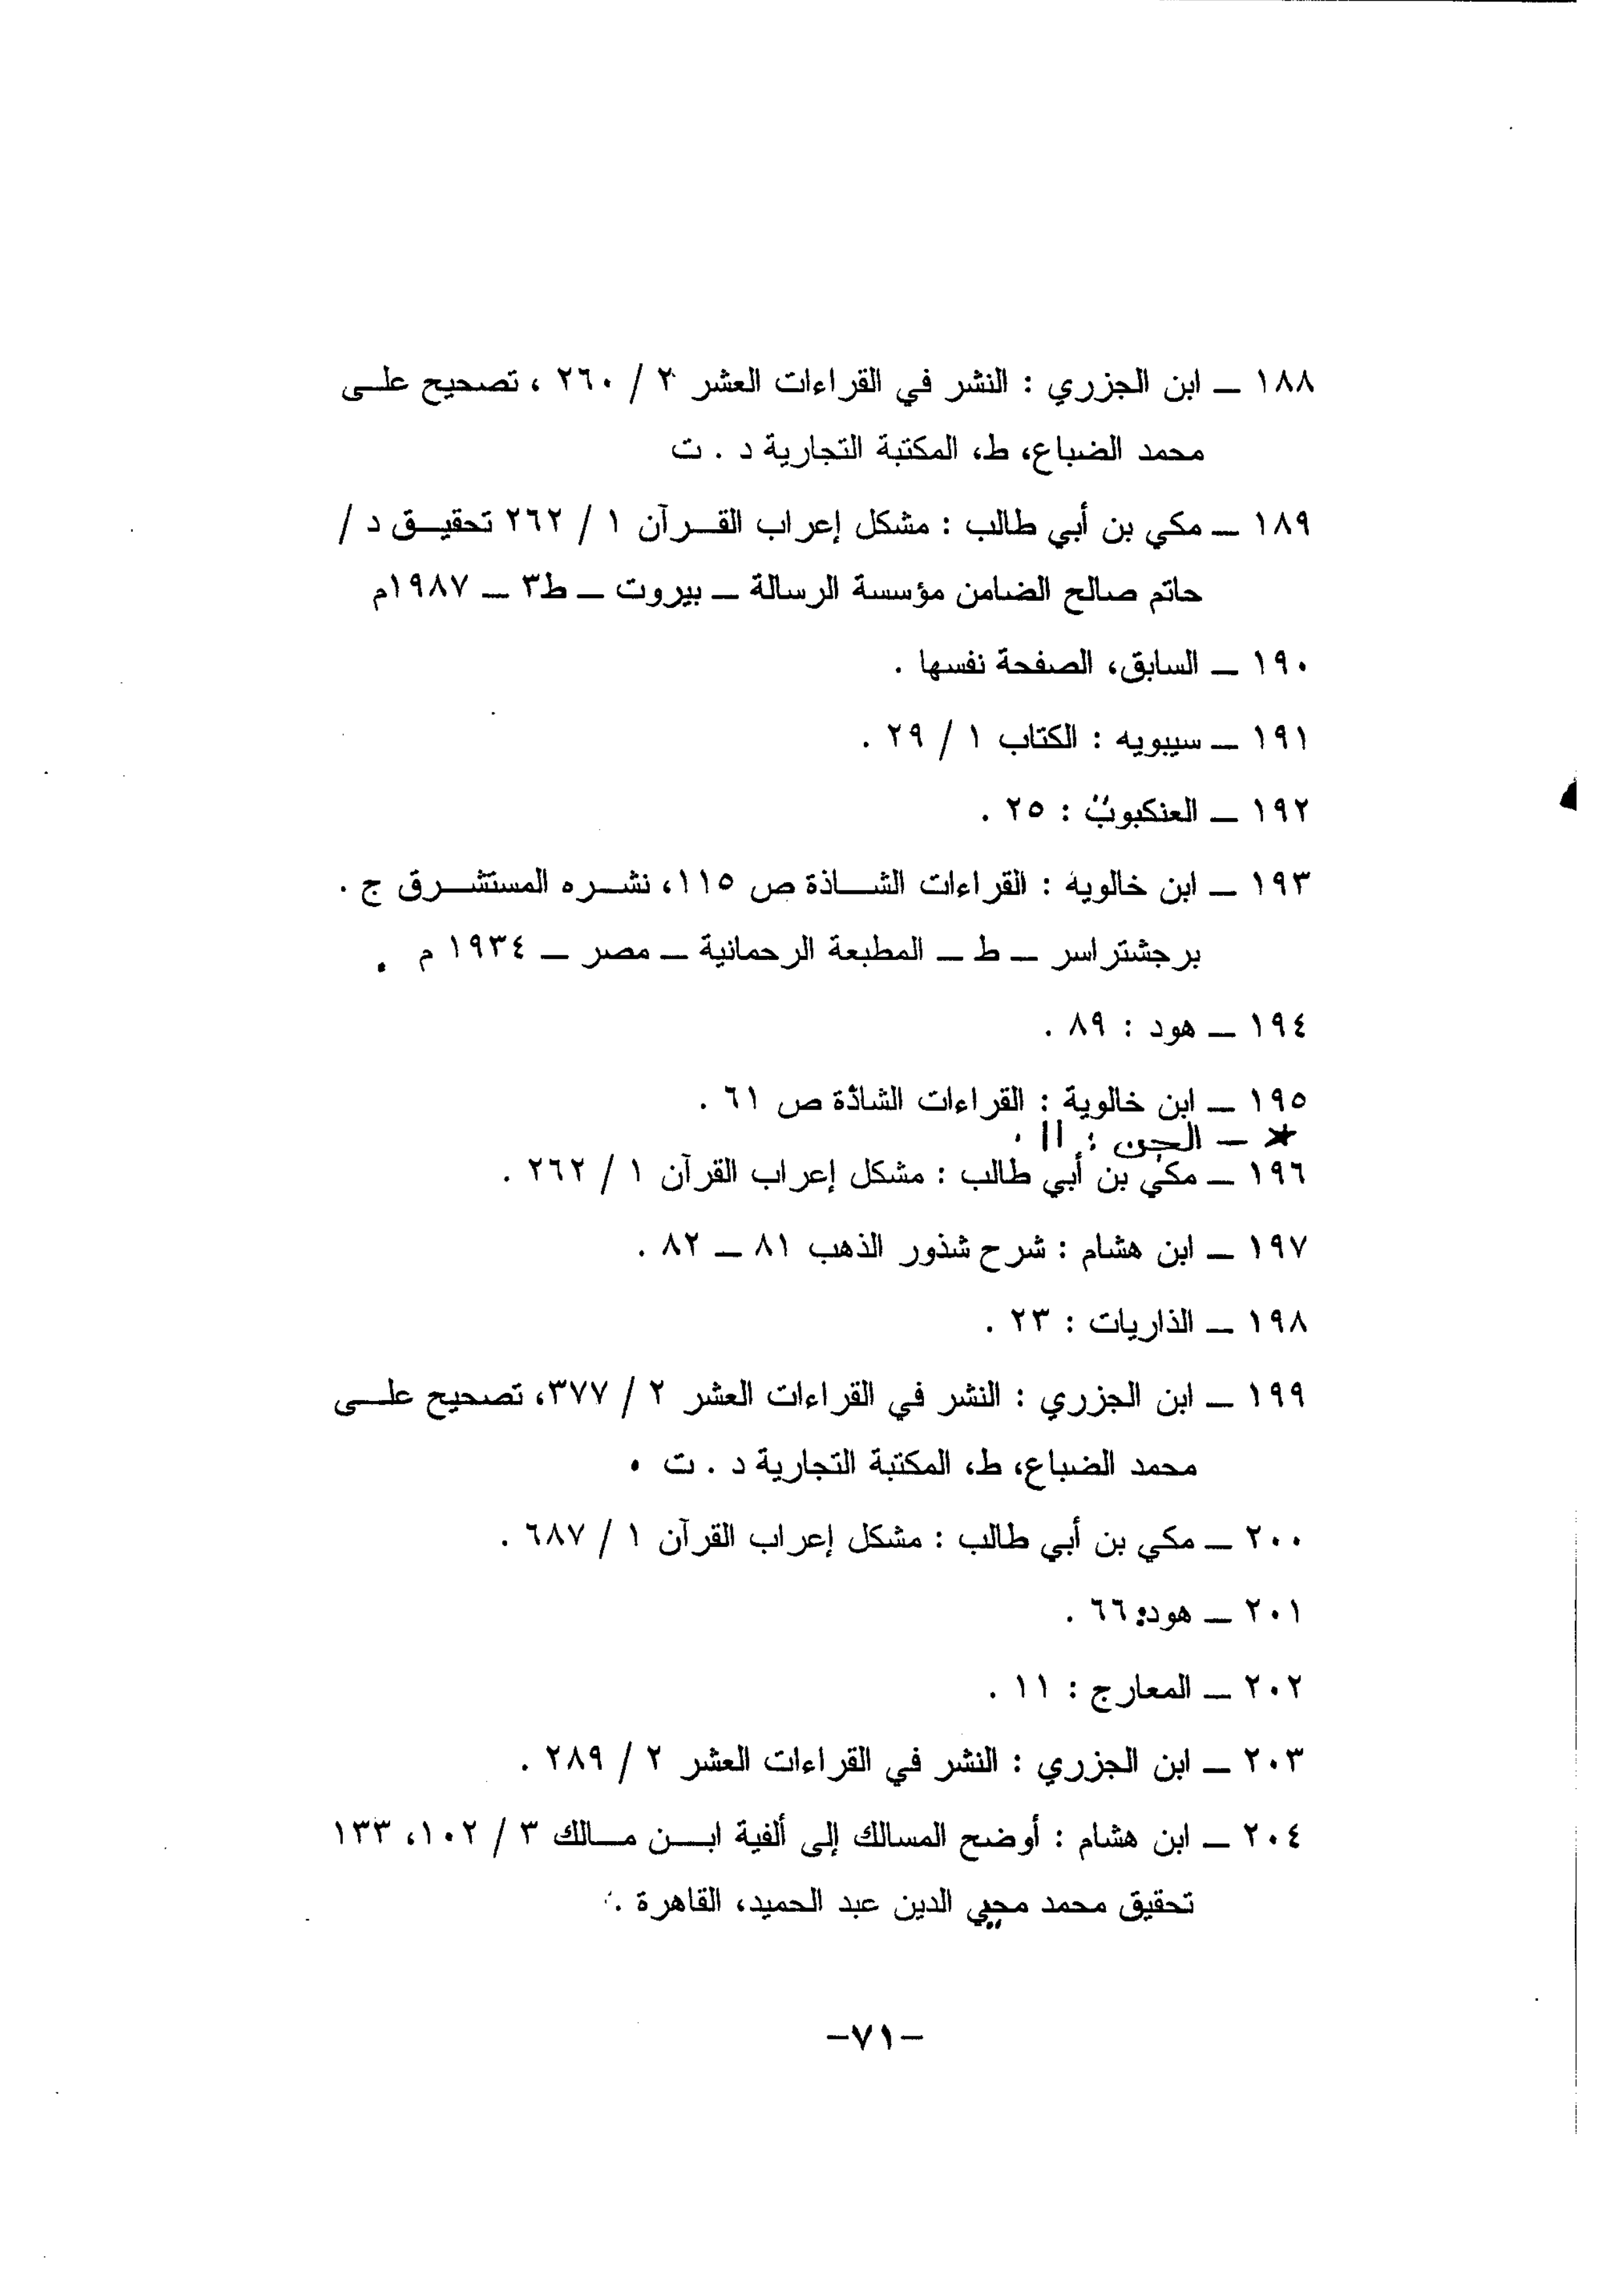 ١٨٨ – ابن الجزري : النشر في القراءات العشر ٢ / ٢٦٠ ، تصحيح على
محمد الضباع، ط، المكتبة التجارية د . ت
١٨٩ – مكي بن أبي طالب : مشكل إعراب القرآن ١ / ٢٦٢ تحقيق د /
حاتم صالح الضامن مؤسسة الرسالة – بيروت – ط٣ – ١٩٨٧م
١٩٠ – السابق، الصفحة نفسها .
١٩١ – سيبويه : الكتاب ١ / ٢٩ .
١٩٢ – العنكبوت : ٢٥ .
١٩٣ – ابن خالوية : القراءات الشاذة ص ١١٥، نشره المستشرق ج .
برجشتراسر – ط – المطبعة الرحمانية – مصر – ١٩٣٤ م .
١٩٤ – هود : ٨٩ .
١٩٥ – ابن خالوية : القراءات الشاذة ص ٦١ .
* – الجن : ١١ .
١٩٦ – مكي بن أبي طالب : مشكل إعراب القرآن ١ / ٢٦٢ .
١٩٧ – ابن هشام : شرح شذور الذهب ٨١ – ٨٢ .
١٩٨ – الذاريات : ٢٣ .
١٩٩ – ابن الجزري : النشر في القراءات العشر ٢ / ٣٧٧، تصحيح على
محمد الضباع، ط، المكتبة التجارية د . ت .
٢٠٠ – مكي بن أبي طالب : مشكل إعراب القرآن ١ / ٦٨٧ .
٢٠١ – هود: ٦٦ .
٢٠٢ – المعارج : ١١ .
٢٠٣ – ابن الجزري : النشر في القراءات العشر ٢ / ٢٨٩ .
٢٠٤ – ابن هشام : أوضح المسالك إلى ألفية ابن مالك ٣ / ١٠٢، ١٣٣
تحقيق محمد محيي الدين عبد الحميد، القاهرة .
-٧١-